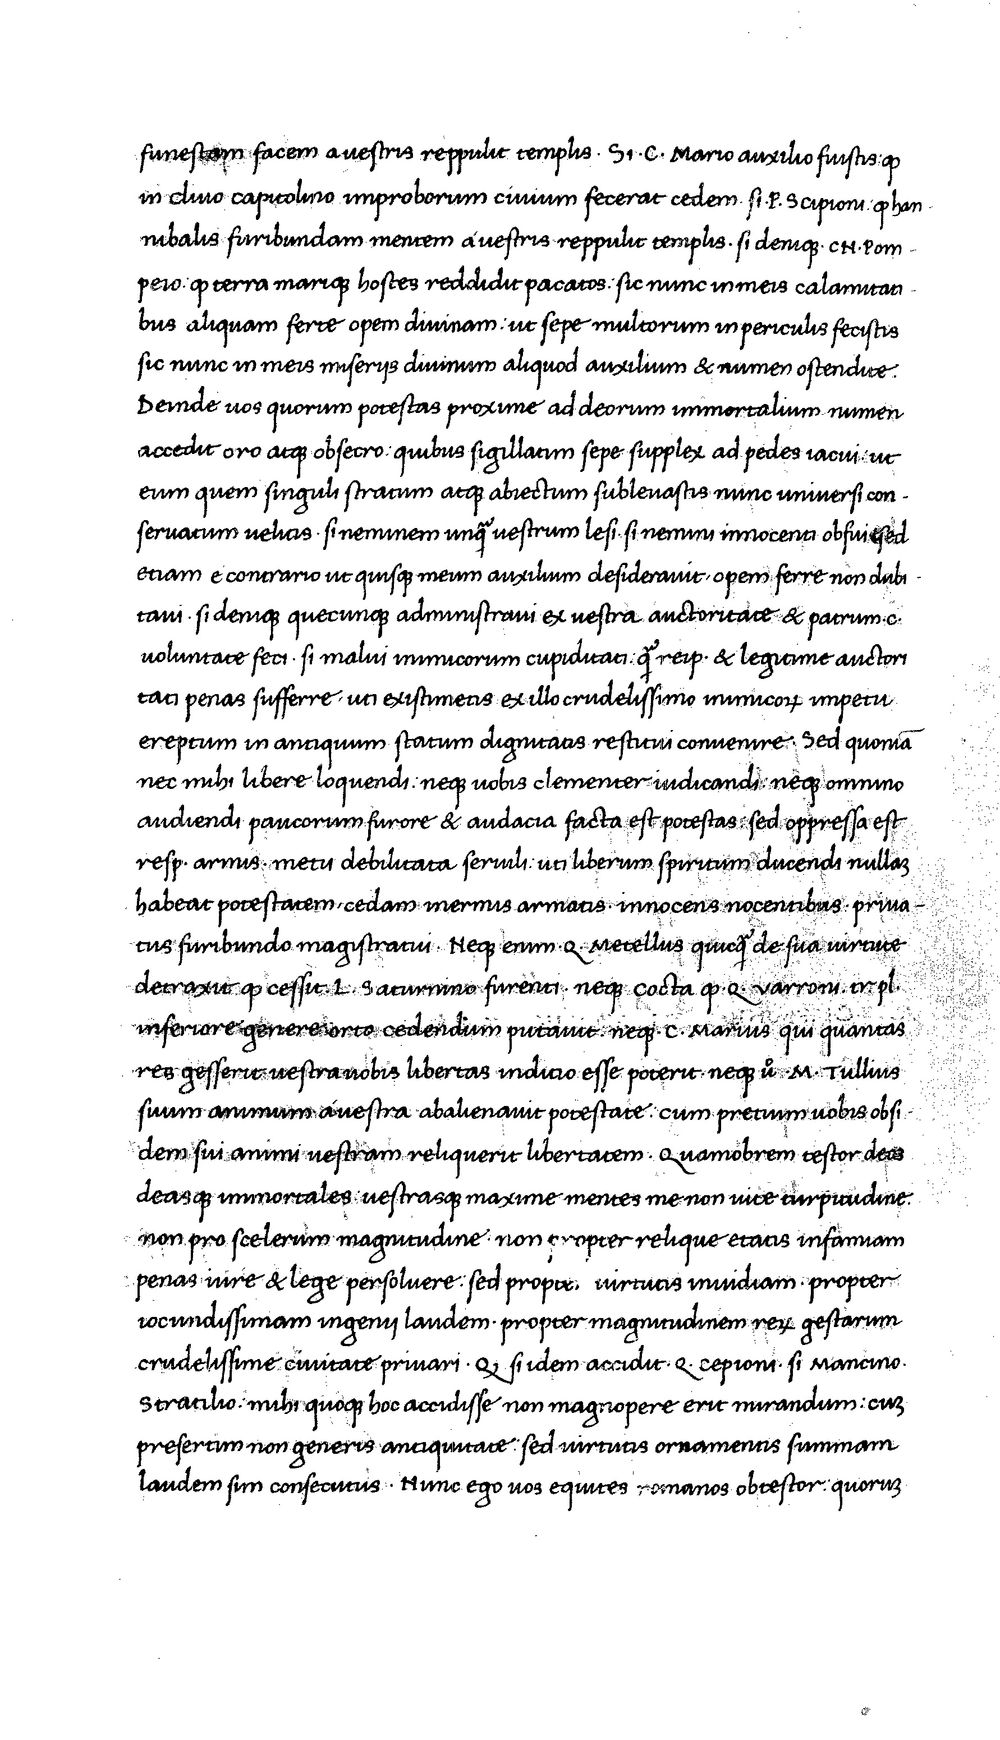 funestam facem a uestris reppulit templis · Si · C · Mario auxilio fuistis: ꝙ
in cliuo capitolino improborum ciuium fecerat cedem · si · P. Scipioni: ꝙ han-
nibalis furibundam mentem a uestris reppulit templis · si deniqꝫ · CN · Pom-
peio: ꝙ terra mariqꝫ hostes reddidit pacatos: sic nunc in meis calamitati-
bus aliquam ferte opem diuinam: ut sepe multorum in periculis fecistis
sic nunc in meis miserijs diuinum aliquod auxilium & numen ostendite.
Deinde uos quorum potestas proxime ad deorum immortalium numen
accedit oro atqꝫ obsecro: quibus sigillatim sepe supplex ad pedes iacui: ut
eum quem singuli stratum atqꝫ abiectum subleuastis nunc uniuersi con-
seruatum uelitis · si neminem unq̃ uestrum lesi · si nemini innocenti obfui sed
etiam e contrario ut quisqꝫ meum auxilium desiderauit, opem ferre non dubi-
taui · si deniqꝫ quecunqꝫ administraui ex uestra auctoritate & patrum · C ·
uoluntate feci · si malui inimicorum cupiditati: q̃ reip · & legitime auctori
tati penas sufferre, uti existimetis ex illo crudelissimo inimicoꝝ impetu
ereptum in antiquum statum dignitatis restitui conuenire · Sed quoniā
nec mihi libere loquendi: neqꝫ uobis clementer iudicandi: neqꝫ omnino
audiendi paucorum furore & audacia facta est potestas: sed oppressa est
resp · armis · metu debilitata seruili: uti liberum spiritum ducendi nullaꝫ
habeat potestatem, cedam inermis armatis · innocens nocentibus · priua-
tus furibundo magistratui · Neqꝫ enim · Q · Metellus quicq̃ de sua uirtute
detraxit ꝙ cessit · L · Saturnino furenti · neqꝫ Cocta ꝙ · Q · Varroni · tr · pl ·
inferiore genere orto cedendum putauit · neqꝫ · C · Marius qui quantas
res gesserit uestra uobis libertas indicio esse poterit · neqꝫ ů · M · Tullius
suum animum a uestra abalienauit potestate: cum pretium uobis obsi-
dem sui animi uestram reliquerit libertatem · Quamobrem testor deos
deasqꝫ immortales: uestrasqꝫ maxime mentes me non uite turpitudine:
non pro scelerum magnitudine · non propter relique etatis infamiam
penas iure & lege persoluere: sed propter uirtutis inuidiam · propter
iocundissimam ingenij laudem · propter magnitudinem reꝝ gestarum
crudelissime ciuitate priuari · Q, si idem accidit · Q · Cepioni · si Mancino ·
Stratilio: mihi quoqꝫ hoc accidisse non magnopere erit mirandum: cuꝫ
presertim non generis antiquitate: sed uirtutis ornamentis summam
laudem sim consecutus · Nunc ego uos equites romanos obtestor: quoruꝫ